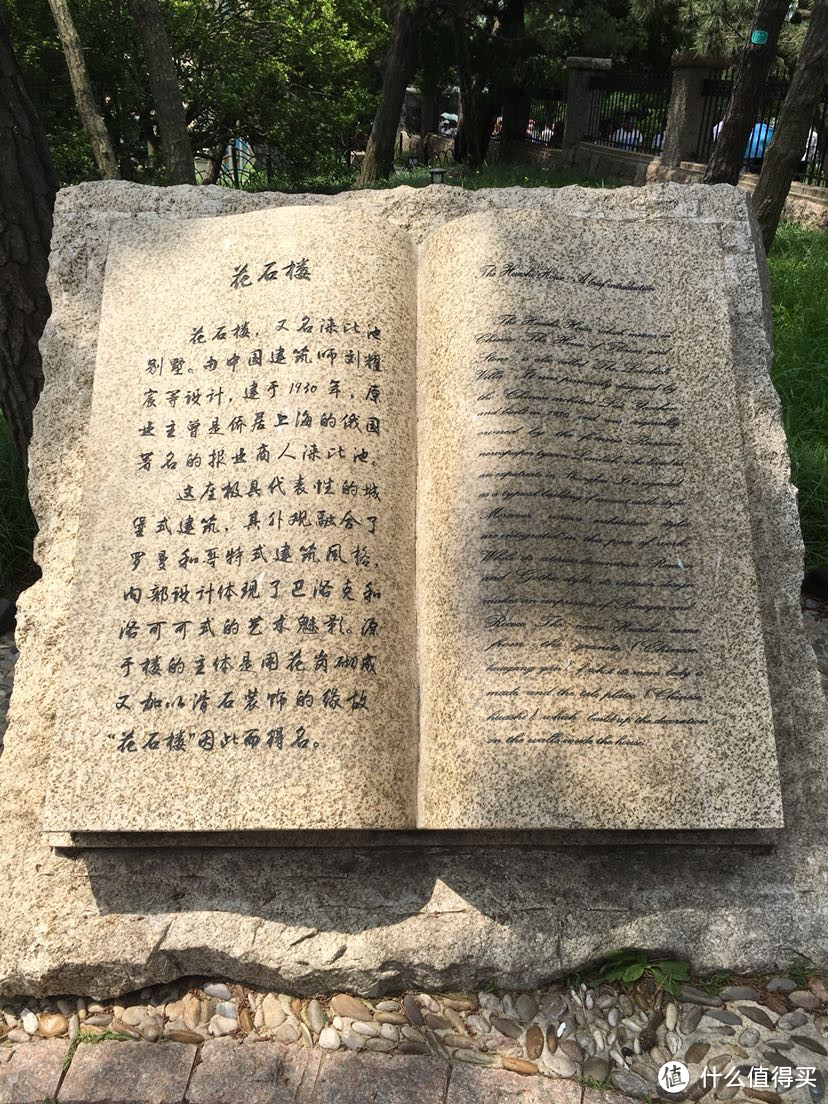 花石楼
花石楼，又名涞比池
别墅。由中国建筑师刘耀
宸等设计，建于1930年，原
业主曾是侨居上海的俄国
著名的报业商人涞比池。
这座极具代表性的城
堡式建筑，其外观融合了
罗曼和哥特式建筑风格，
内部设计体现了巴洛克和
洛可可式的艺术魅影。源
于楼的主体是用花岗砌成
又加以滑石装饰的缘故
“花石楼”因此而得名。
The Huashi House A brief introduction
The Huashi House which means in
Chinese The House of Flower and
Stone is also called The
Villa It was designed by
the Chinese architect Liu
and built in 1930 and was originally
owned by the famous Russian
newspaper tycoon who lived as
an expatriate in Shanghai. It is regarded
as a typical building of style
Moreover various architecture styles
are integrated in this piece of work.
While its exterior demonstrates Roman
and Gothic styles, its interior design
makes an impression of Baroque and
Rococo. The name Huashi came
from the granite (Chinese:
huagang yan) of what its main body is
made and the talc plates (Chinese:
huashi) which build up the decoration
on the walls inside the house.
值 什么值得买